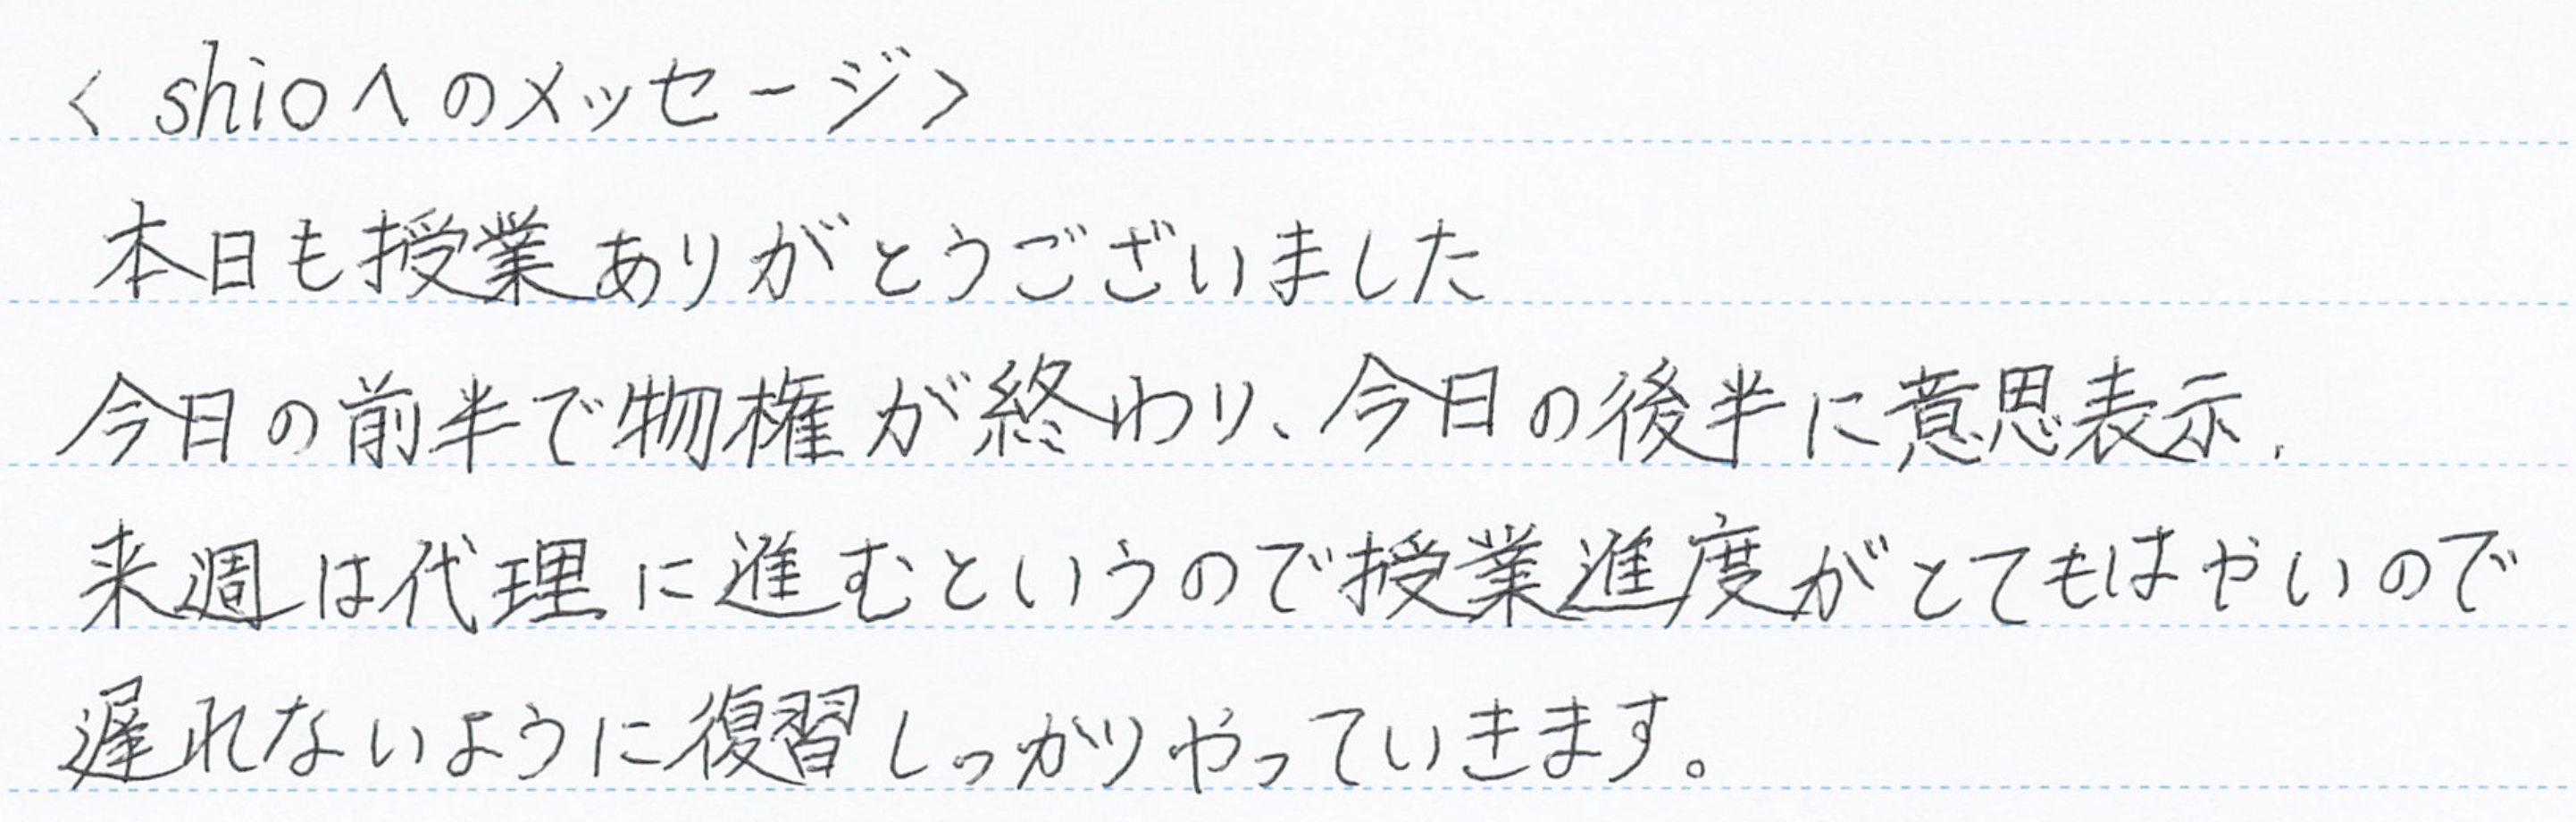 < shioへのメッセージ>
本日も授業ありがとうございました
今日の前半で物権が終わり、今日の後半に意思表示、
来週は代理に進むというので授業進度がとてもはやいので
遅れないように復習しっかりやっていきます。